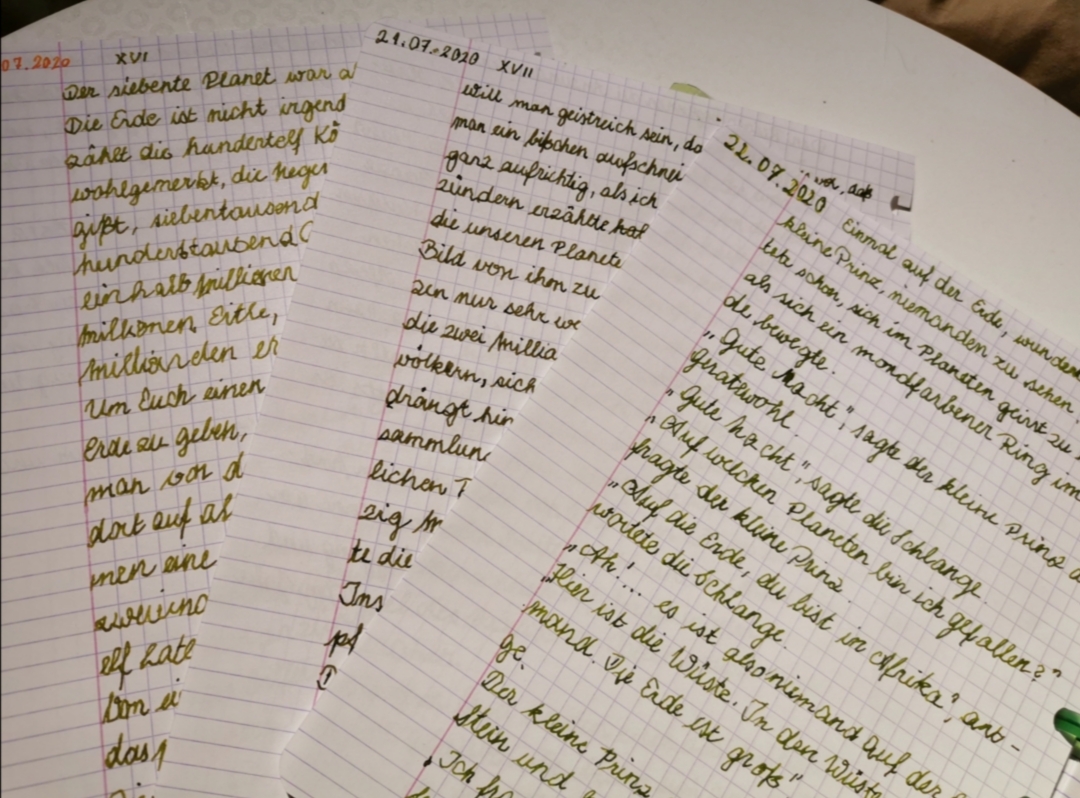 07.2020 XVI
Der siebente Planet war a
Die Erde ist nicht irgend
zählt dic hundertelf Kö
wohlgemerkt, die Neger
gißt, siebentausend
hunderttausend
einhalb Millionen
Millionen Eitle,
Milliarden er
Um Euch einen
Erde zu geben,
man vor d
dort auf al
men eine
zweiund
elf
Von ei
das
21.07.2020 XVII
Will man geistreich sein, do
man ein bißchen aufschnei
ganz aufrichtig, als ich
zündern erzählte hab
die unseren Planete
Bild von ihm zu
zen nur sehr we
die zwei Millia
völkern, sich
drängt hin
sammlun
lichen
zig M
te die
Ins
pf
22.07.2020
vor, daß
Einmal auf der Erde, wunder
kleine Prinz, niemanden zu sehen.
tete schon, sich im Planeten geirrt zu
als sich ein mondfarbener Ring im
de bewegte.
„Gute Nacht", sagte der kleine Prinz a
geratewohl
„Gute Nacht", sagte die Schlange.
„Auf welchen Planeten bin ich gefallen?"
fragte der kleine Prinz.
„Auf die Erde, du bist in Afrika", ant-
wortete die Schlange.
„Ah!... es ist also niemand auf der
„Hier ist die Wüste. In den Wüste
mand. Die Erde ist groß"
ge.
Der kleine Prinz
Stein und
„Ich fra